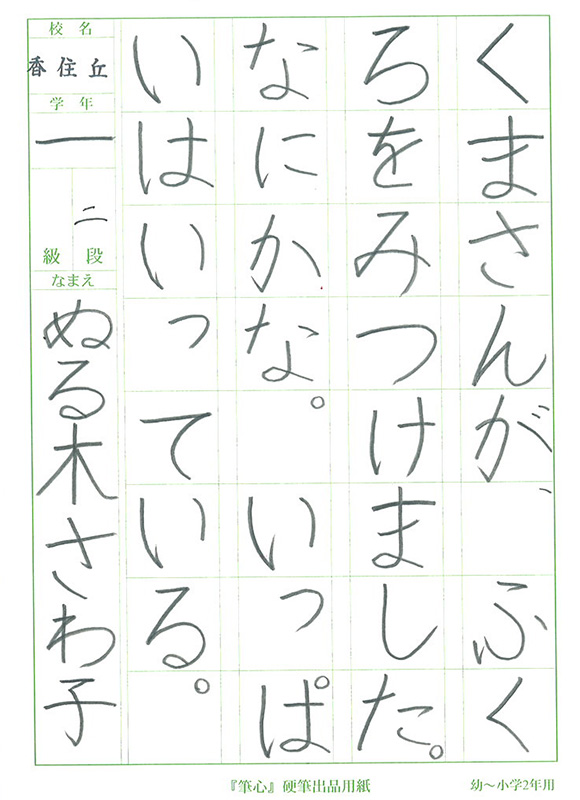 くまさんが、ふく
ろをみつけました。
なにかな。いっぱ
いはいっている。
校名
香住丘
学年
一
二
級段
なまえ
ぬる木さわ子
『筆心』硬筆出品用紙
幼〜小学2年用